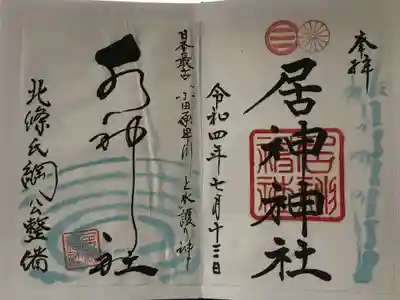 奉拝
居神神社
令和四年七月十三日
日本最古 小田原早川上水護り神
水神社
北條氏綱公整備